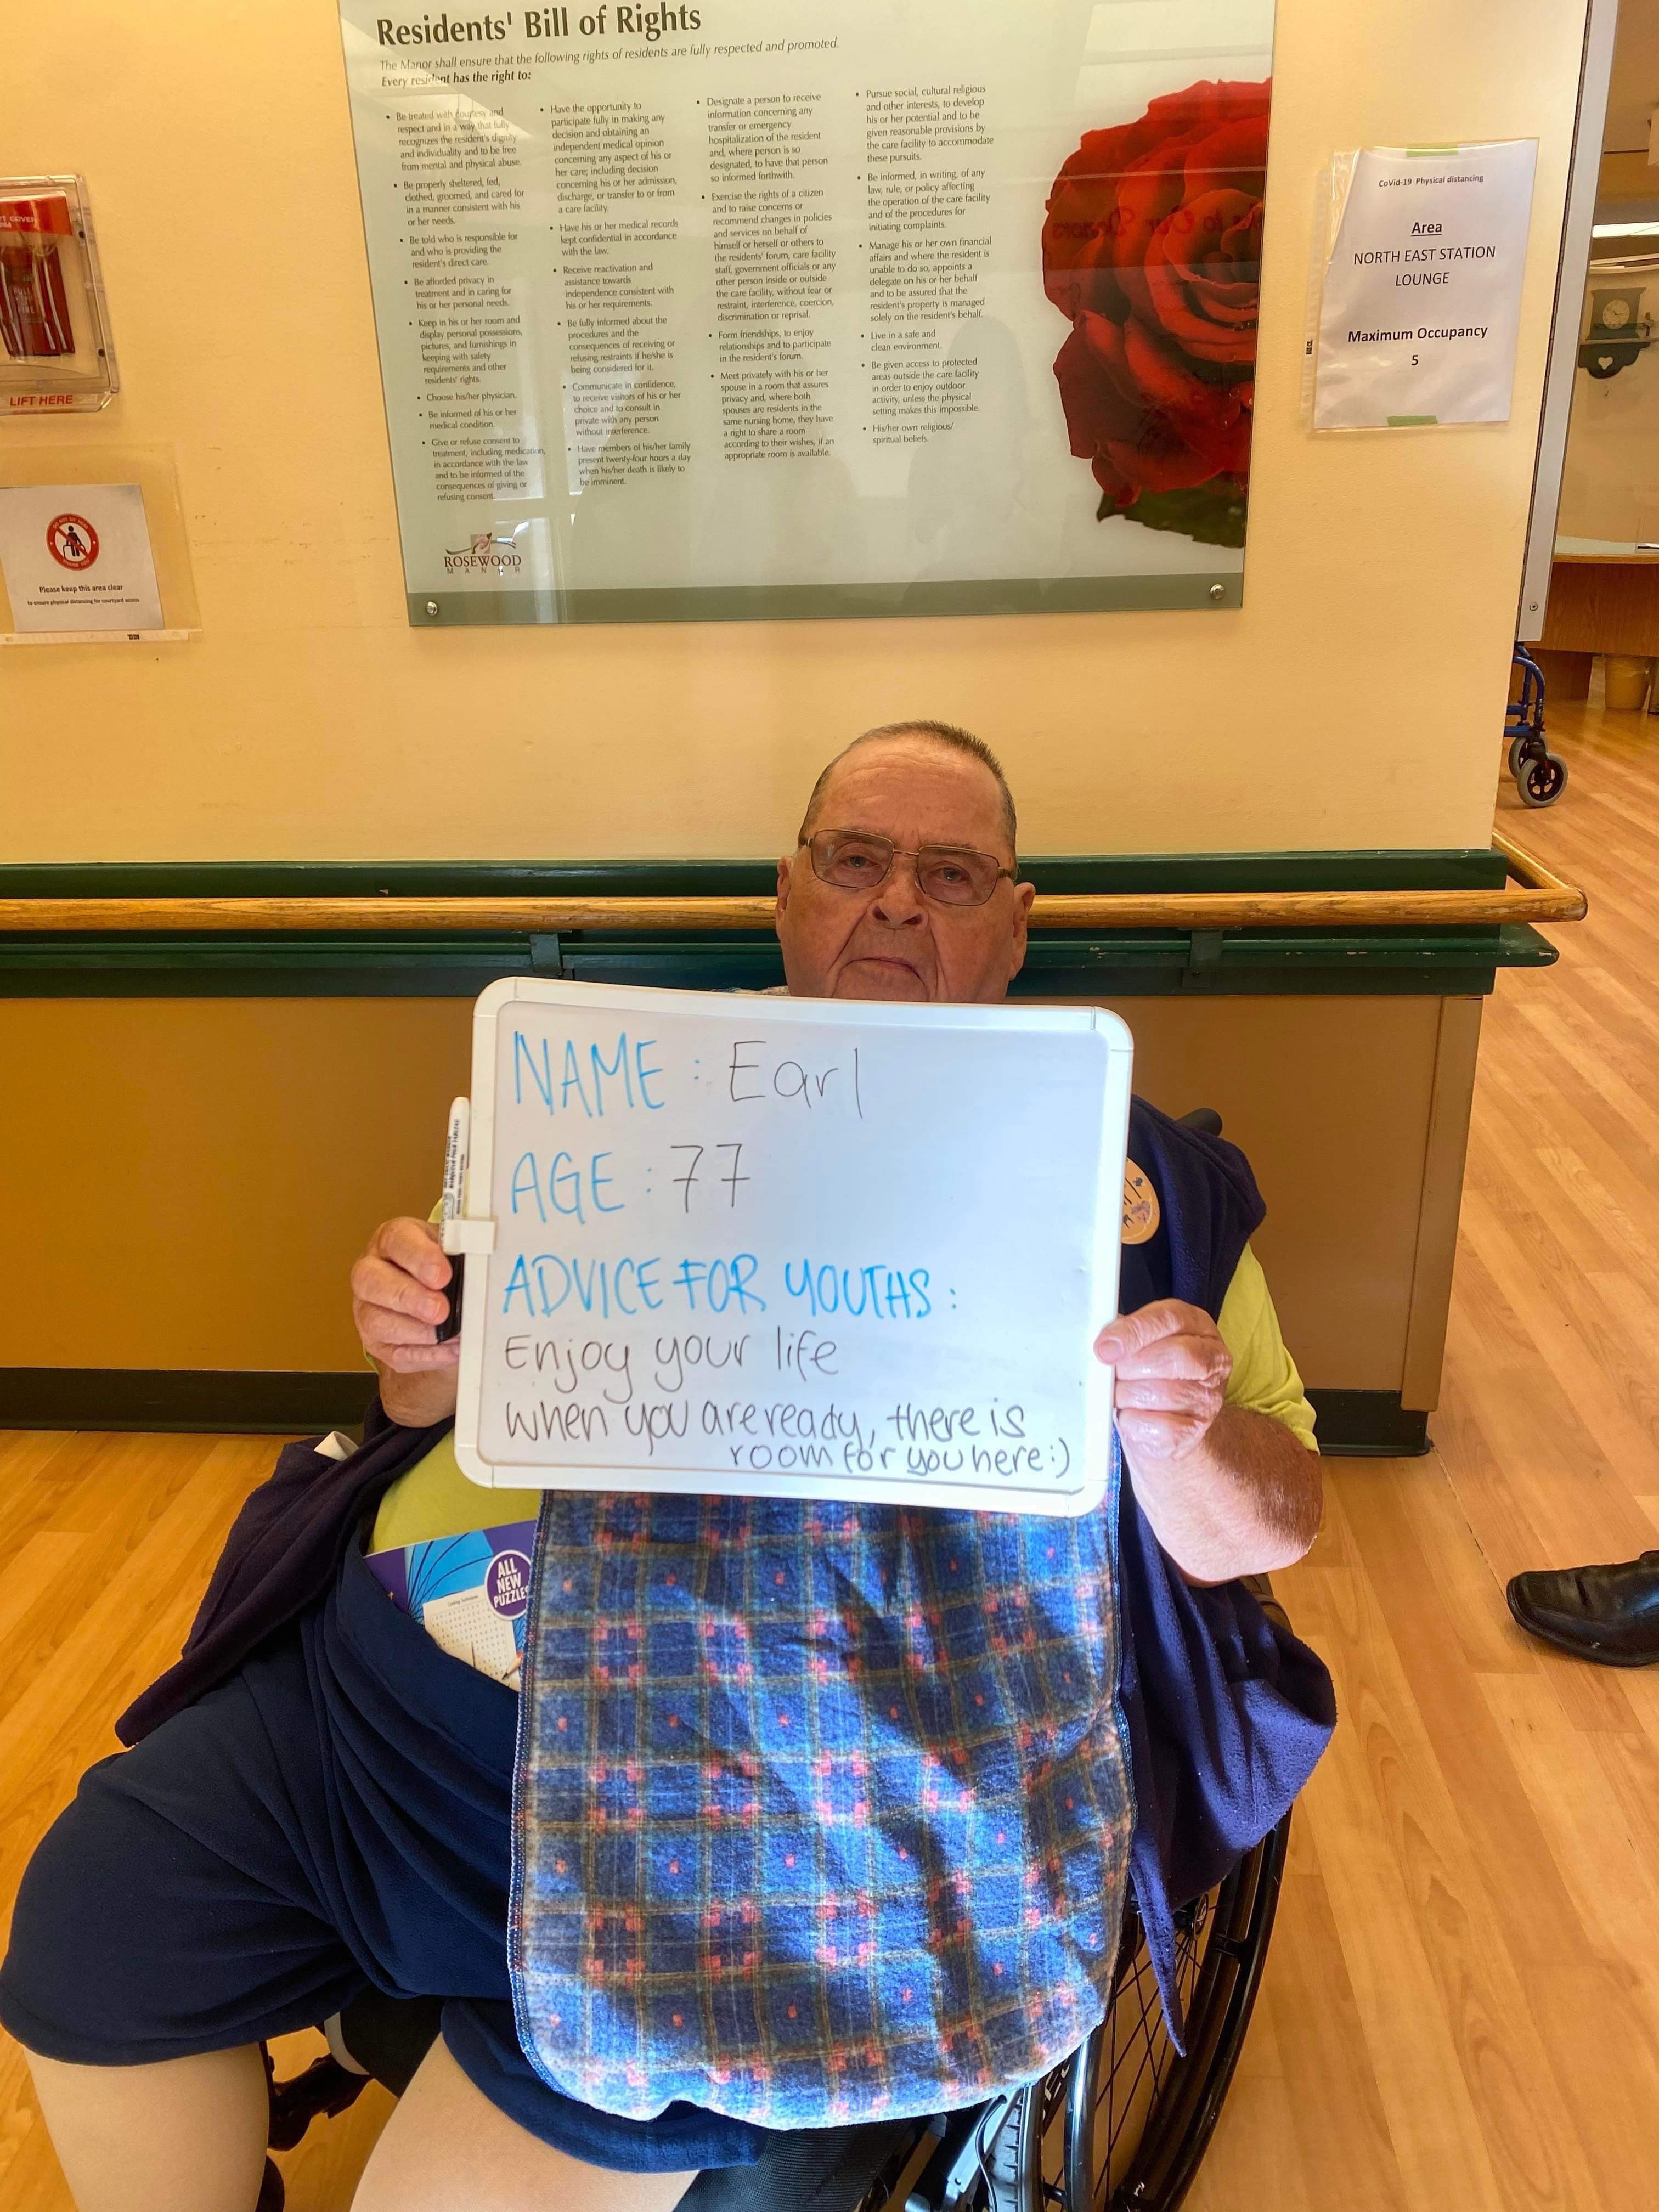 Residents' Bill of Rights
The Manor shall ensure that the following rights of residents are fully respected and promoted.
Every resident has the right to:
• Be treated with courtesy and
respect and in a way that fully
recognizes the resident's dignity
and individuality and to be free
from mental and physical abuse.
• Be properly sheltered, fed,
clothed, groomed, and cared for
in a manner consistent with his
or her needs.
• Be told who is responsible for
and who is providing the
resident's direct care.
• Be afforded privacy in
treatment and in caring for
his or her personal needs.
• Keep in his or her room and
display personal possessions,
pictures, and furnishings in
keeping with safety
requirements and other
residents' rights.
• Choose his/her physician.
• Be informed of his or her
medical condition.
• Give or refuse consent to
treatment, including medication,
in accordance with the law
and to be informed of the
consequences of giving or
refusing consent.
• Have the opportunity to
participate fully in making any
decision and obtaining an
independent medical opinion
concerning any aspect of his or
her care; including decision
concerning his or her admission,
discharge, or transfer to or from
a care facility.
• Have his or her medical records
kept confidential in accordance
with the law.
• Receive reactivation and
assistance towards
independence consistent with
his or her requirements.
• Be fully informed about the
procedures and the
consequences of receiving or
refusing restraints if he/she is
being considered for it.
• Communicate in confidence,
to receive visitors of his or her
choice and to consult in
private with any person
without interference.
• Have members of his/her family
present twenty-four hours a day
when his/her death is likely to
be imminent.
• Designate a person to receive
information concerning any
transfer or emergency
hospitalization of the resident
and, where person is so
designated, to have that person
so informed forthwith.
• Exercise the rights of a citizen
and to raise concerns or
recommend changes in policies
and services on behalf of
himself or herself or others to
the residents' forum, care facility
staff, government officials or any
other person inside or outside
the care facility, without fear or
restraint, interference, coercion,
discrimination or reprisal.
• Form friendships, to enjoy
relationships and to participate
in the resident's forum.
• Meet privately with his or her
spouse in a room that assures
privacy and, where both
spouses are residents in the
same nursing home, they have
a right to share a room
according to their wishes, if an
appropriate room is available.
• Pursue social, cultural religious
and other interests, to develop
his or her potential and to be
given reasonable provisions by
the care facility to accommodate
these pursuits.
• Be informed, in writing, of any
law, rule, or policy affecting
the operation of the care facility
and of the procedures for
initiating complaints.
• Manage his or her own financial
affairs and where the resident is
unable to do so, appoints a
delegate on his or her behalf
and to be assured that the
resident's property is managed
solely on the resident's behalf.
• Live in a safe and
clean environment.
• Be given access to protected
areas outside the care facility
in order to enjoy outdoor
activity, unless the physical
setting makes this impossible.
• His/her own religious/
spiritual beliefs.
ROSEWOOD
MANOR
CoVid-19 Physical distancing
Area
NORTH EAST STATION
LOUNGE
Maximum Occupancy
5
LIFT HERE
Please keep this area clear
to ensure physical distancing for courtyard access
NAME: Earl
AGE: 77
ADVICE FOR YOUTHS:
Enjoy your life
when you are ready, there is
room for you here :)
ALL
NEW
PUZZLES